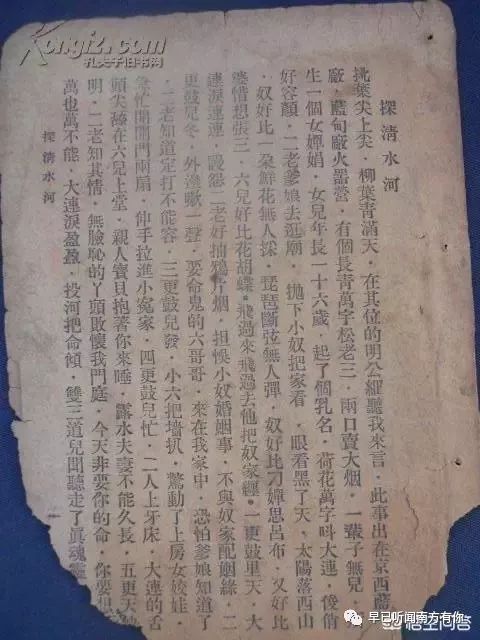 探清水河
桃葉尖上尖．柳葉青滿天．在其位的明公羅聽我來言．此事出在京西藍
廠．藍甸廠火器營．有個長青萬字松老三．兩口賣大烟．一輩子無兒．
生一個女嬋娟．女兒年長一十六歲．起了個乳名．荷花萬字呌大連．俊俏
好容顏．二老爹娘去逛廟．拋下小奴把家看．眼看黑了天．太陽落西山
．奴好比一朶鮮花無人採．琵琶斷弦無人彈．奴好比刁嬋思呂布．又好比
婆惜想張三．六兒好比花胡蝶．飛過來飛過去他把奴家纏．一更鼓里天．大
連淚連連．報怨二老好抽鴉片烟．担悞小奴婚姻事．不與奴家配姻緣．二
更鼓兒冬．外邊嗽一聲．要命鬼的六哥哥．來在我家中．恐怕爹娘知道了
．二老知道定打不能容．三更鼓兒發．小六把墻扒．驚動了上房女姣娃．
急忙開開門兩扇．伸手拉進小寃家．四更鼓兒忙．二人上牙床．大連的舌
頭尖在六兒上堂．親人寶貝抱著你來睡．露水夫妻不能久長．五更天
明．二老知其情．無臉恥的丫頭敗懷我門庭．今天非要你的命．你要想
萬也萬不能．大連淚盈盈．投河把命傾．雙三道兒聞聽走了眞魂靈
探清水河
一
Kongfz.com
孔夫子旧书网
早已听闻南方有你
悟空问答